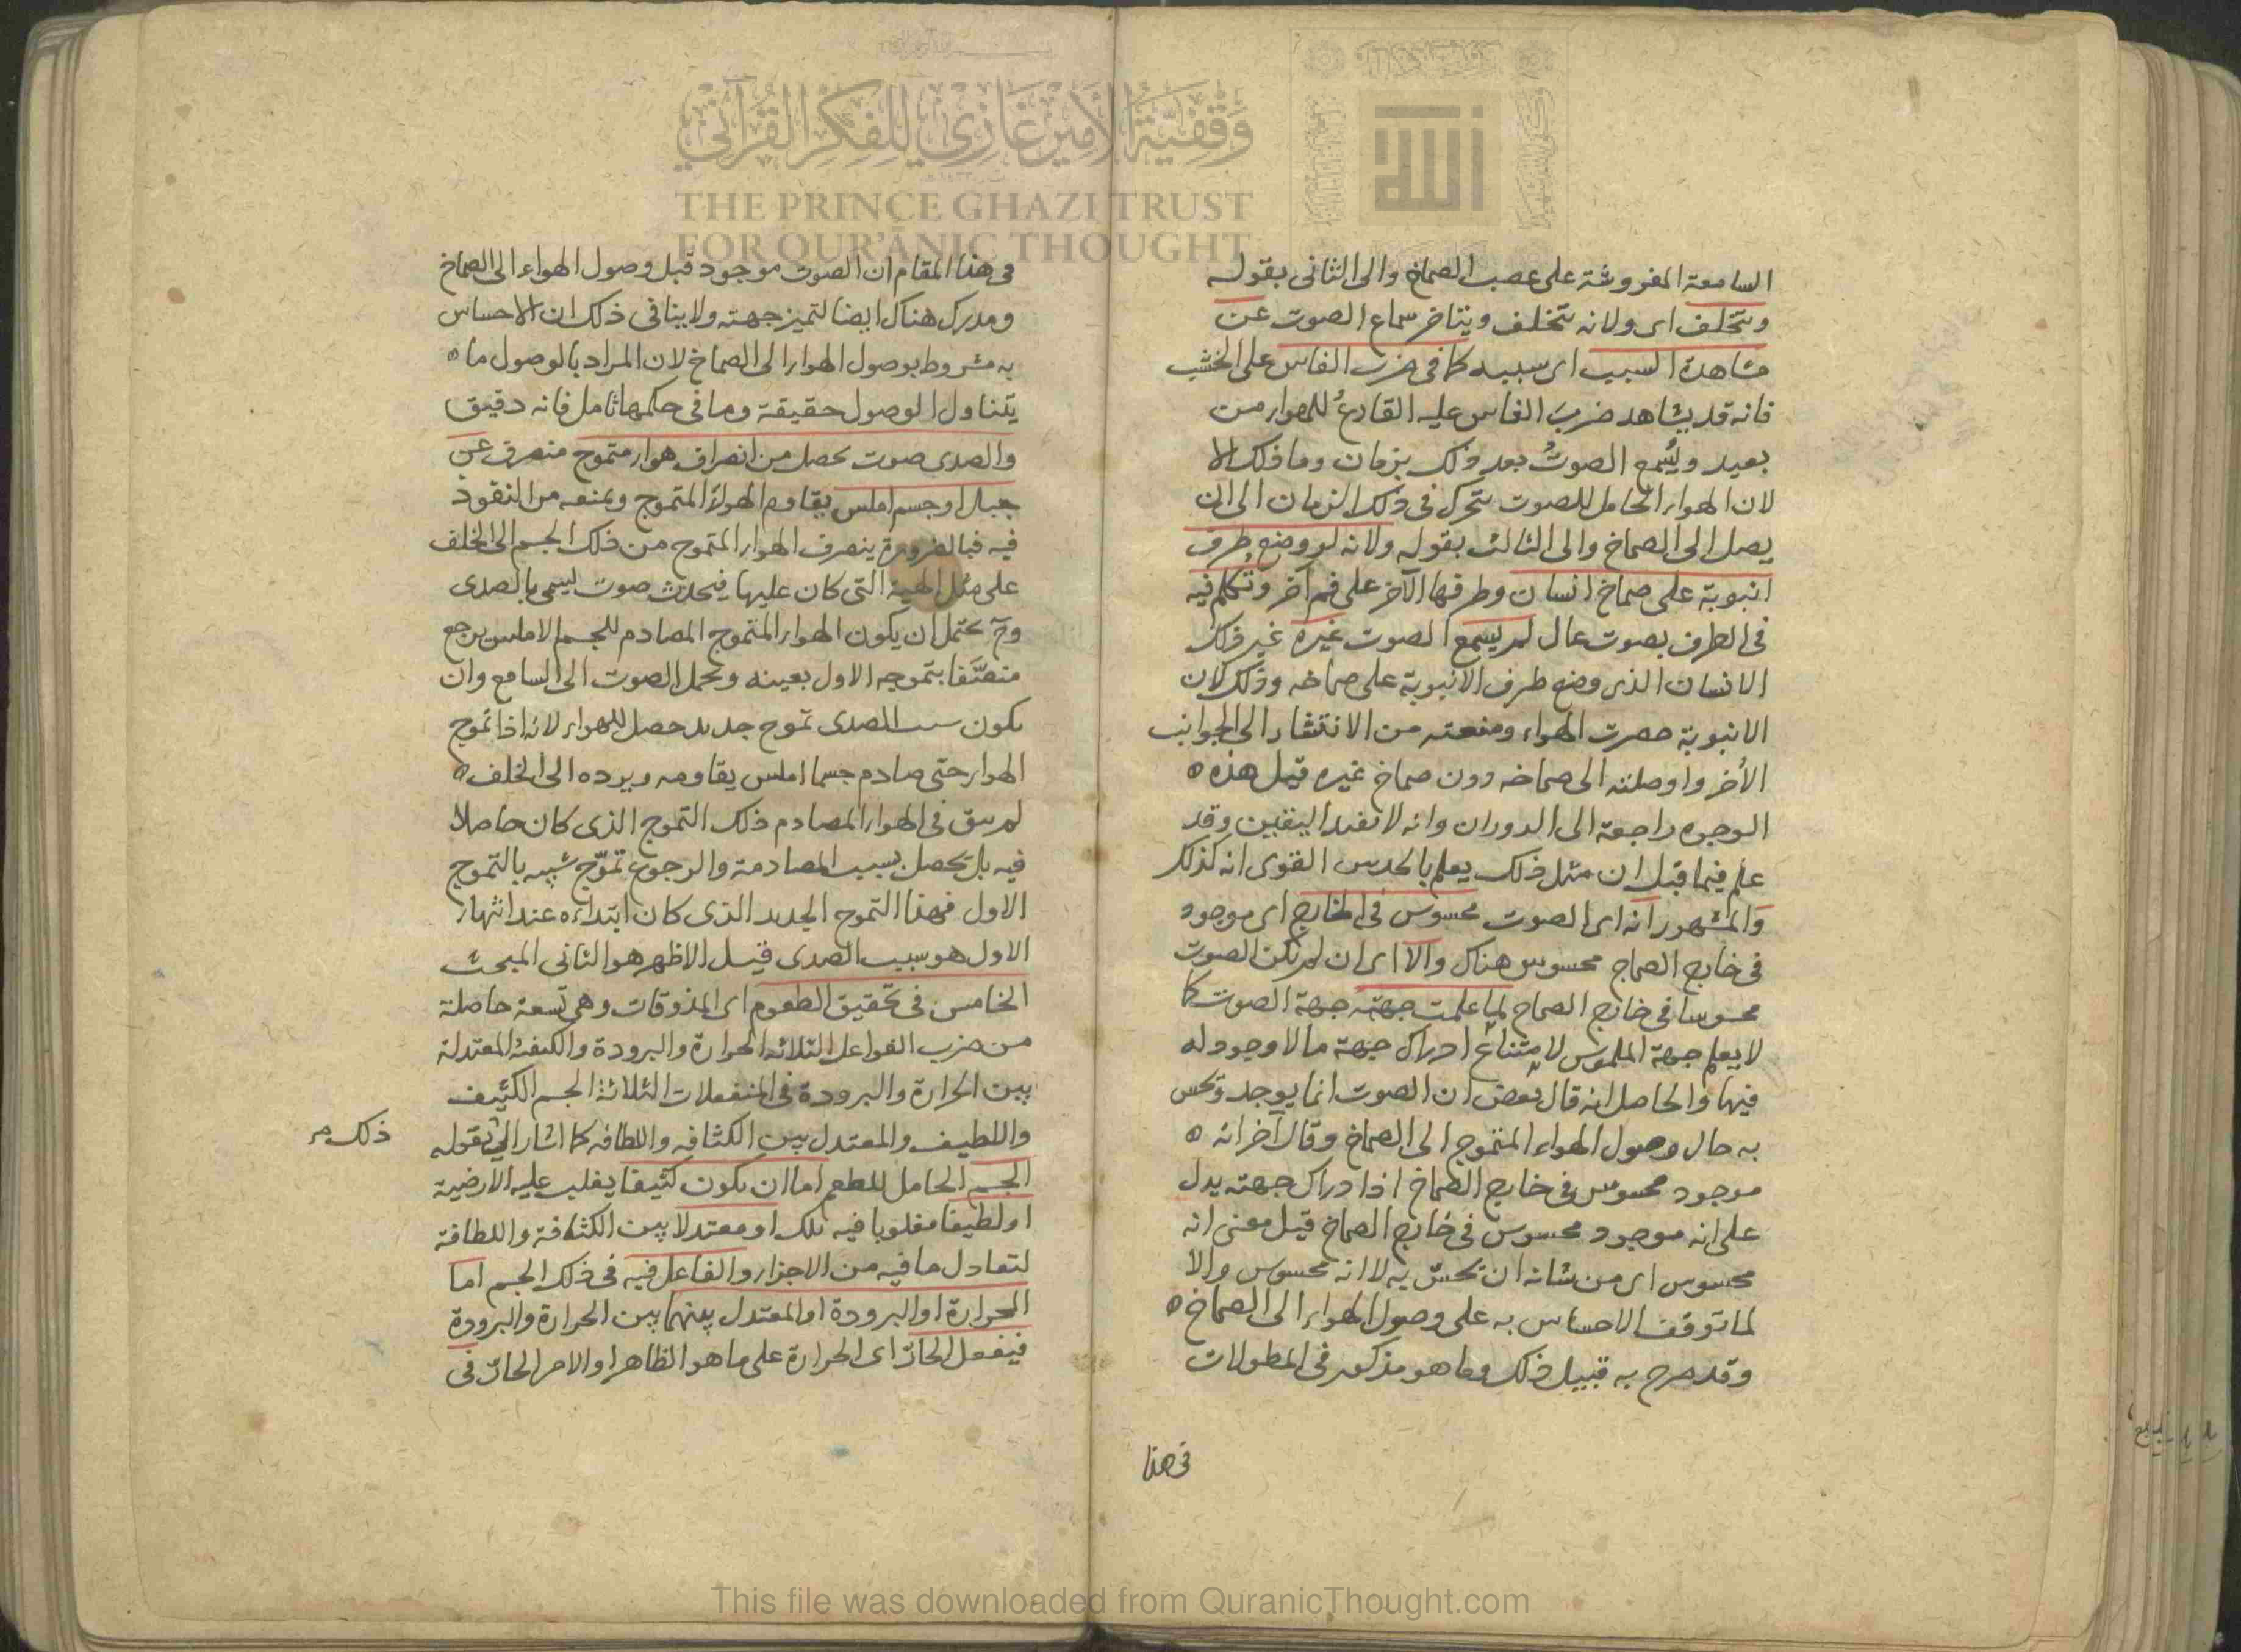 السامعة المفروشة على عصب الصماخ والى الثانى بقوله
ويتخلف اى ولانه يتخلف ويتاخر سماع الصوت عن
مشاهدة السبب اى سببه كما فى ضرب الفاس على الخشب
فانه قد يشاهد ضرب الفاس عليه القارع للهواء من
بعيد ويُسمع الصوتُ بعد ذلك بزمان وما ذلك الا
لان الهواء الحامل للصوت يتحرك فى ذلك الزمان الى ان
يصل الى الصماخ والى الثالث بقوله ولانه لو وضع طرف
انبوبة على صماخ انسان وطرفها الآخر على فم آخر وتُكلم فيه
فى الطرف بصوت عال لم يسمع الصوت غيره غير ذلك
الانسان الذى وضع طرف الانبوبة على صماخه وذلك لان
الانبوبة حصرت الهواء ومنعته من الانتشار الى الجوانب
الأخر واوصلته الى صماخه دون صماخ غيره قيل هذه ه
الوجوه راجعة الى الدوران وانه لا تفيد اليقين وقد
علم فيما قبل ان مثل ذلك يعلم بالحدس القوى انه كذلك
والمشهور انه اى الصوت محسوس فى الخارج اى موجود
فى خارج الصماخ محسوس هناك والا اى ان لم يكن الصوت
محسوسا فى خارج الصماخ لما علمت جهته جهة الصوت كما
لا يعلم جهة الملموس لامتناع ادراك جهة ما لا وجود له
فيها والحاصل انه قال بعض ان الصوت انما يوجد ويحس
به حال وصول الهواء المتموج الى الصماخ وقال آخر انه ه
موجود محسوس فى خارج الصماخ اذ ادراك جهته يدل
على انه موجود محسوس فى خارج الصماخ قيل معنى انه
محسوس اى من شانه ان يحسّ به لا انه محسوس والا
لما توقف الاحساس به على وصول الهواء الى الصماخ ه
وقد صرح به قبيل ذلك وما هو مذكور فى المطولات
فى هذا
فى هذا المقام ان الصوت موجود قبل وصول الهواء الى الصماخ
ومدرك هناك ايضا لتميز جهته ولا ينافى ذلك ان الاحساس
به مشروط بوصول الهواء الى الصماخ لان المراد بالوصول ما ه
يتناول الوصول حقيقة وما فى حكمها تامل فانه دقيق
والصدى صوت يحصل من انصراف هواء متموج منصرف عن
جبل او جسم املس يقاوم الهواء المتموج ويمنعه من النفوذ
فيه فبالضرورة ينصرف الهواء المتموج من ذلك الجسم الى الخلف
على مثل الهيئة التى كان عليها فيحدث صوت يسمى بالصدى
وح يحتمل ان يكون الهواء المتموج المصادم للجسم الاملس يرجع
متصّفا بتموجه الاول بعينه ويحمل الصوت الى السامع وان
يكون سبب الصدى تموج جديد حصل للهواء لانه اذا تموج
الهواء حتى صادم جسما املس يقاومه ويرده الى الخلف ه
لم يبق فى الهواء المصادم ذلك التموج الذى كان حاصلا
فيه بل يحصل بسبب المصادمة والرجوع تموّج شبيه بالتموج
الاول فهذا التموج الجديد الذى كان ابتداءه عند انتهاء
الاول هو سبب الصدى قيل الاظهر هو الثانى المبحث
الخامس فى تحقيق الطعوم اى المذوقات وهى تسعة حاصلة
من ضرب الفواعل الثلاثة الحرارة والبرودة والكيفية المعتدلة
بين الحرارة والبرودة فى المنفعلات الثلاثة الجسم الكثيف
واللطيف والمعتدل بين الكثافه واللطافه كما اشار الى بقوله
ذلك صر
الجسم الحامل للطعم اما ان يكون كثيفا يغلب عليه الارضية
او لطيفا مغلوبا فيه تلك او معتدلا بين الكثافة واللطافة
لتعادل ما فيه من الاجزاء والفاعل فيه فى ذلك الجسم اما
الحرارة او البرودة او المعتدل بينهما بين الحرارة والبرودة
فيفعل الحارّ اى الحرارة على ما هو الظاهر او الامر الحارّ فى
وقفية الأمير غازي للفكر القرآني
THE PRINCE GHAZI TRUST
FOR QUR'ĀNIC THOUGHT
الله
This file was downloaded from QuranicThought.com